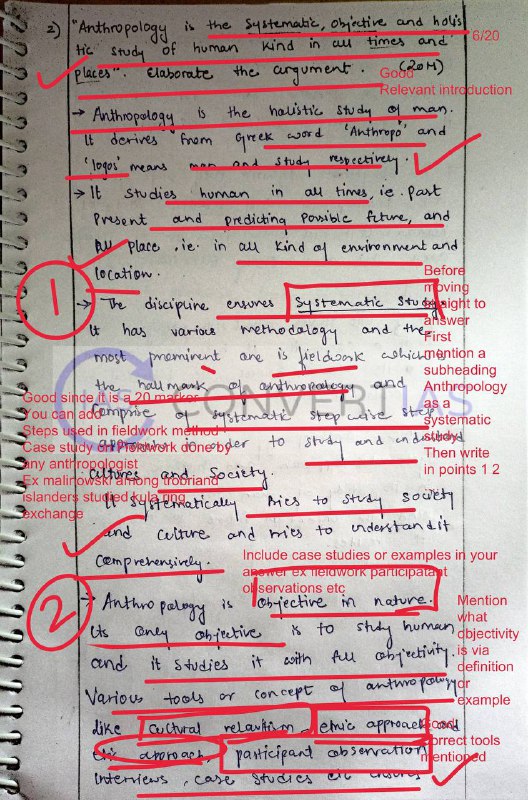 2) "Anthropology is the systematic, objective and holis
tic study of human kind in all times and
places". Elaborate the argument. (20M)
6/20
Good
Relevant introduction
→ Anthropology is the holistic study of man.
It derives from Greek word 'Anthropo' and
'logos' means man and study respectively.
→ It studies human in all times, i.e. past
present and predicting possible future, and
All place .i.e. in all kind of environment and
location.
1
→ The discipline ensures systematic study.
It has various methodology and the
most prominent one is fieldwork which is
the hallmark of anthropology and
comprise of systematic step wise step
approach in order to study and understand
cultures and Society.
It systematically tries to study society
and culture and tries to understand it
comprehensively.
Before
moving
straight to
answer
First
mention a
subheading
Anthropology
as a
systematic
study
Then write
in points 1 2
Good since it is a 20 marker
You can add
Steps used in fieldwork method
Case study on Fieldwork done by
any anthropologist
Ex malinowski among trobriand
islanders studied kula ring
exchange
CONVERTIAS
Include case studies or examples in your
answer ex fieldwork participatant
observations etc
2
→ Anthropology is objective in nature.
Its only objective is to study human
and it studies it with All objectivity.
Various tools or concept of anthropology
like cultural relavitism, emic approach and
etic approach, participant observation
interviews, case studies etc ensures
Mention
what
objectivity
is via
definition
or
example
Good
correct tools
mentioned